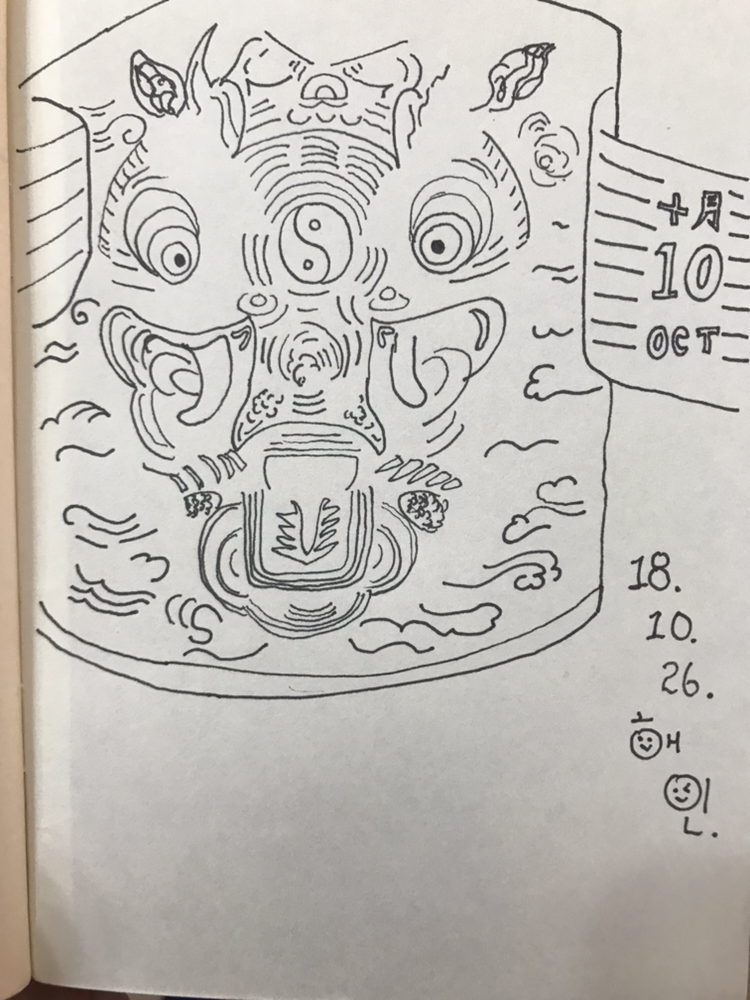 十月
10
OCT
18.
10.
26.
해
인.